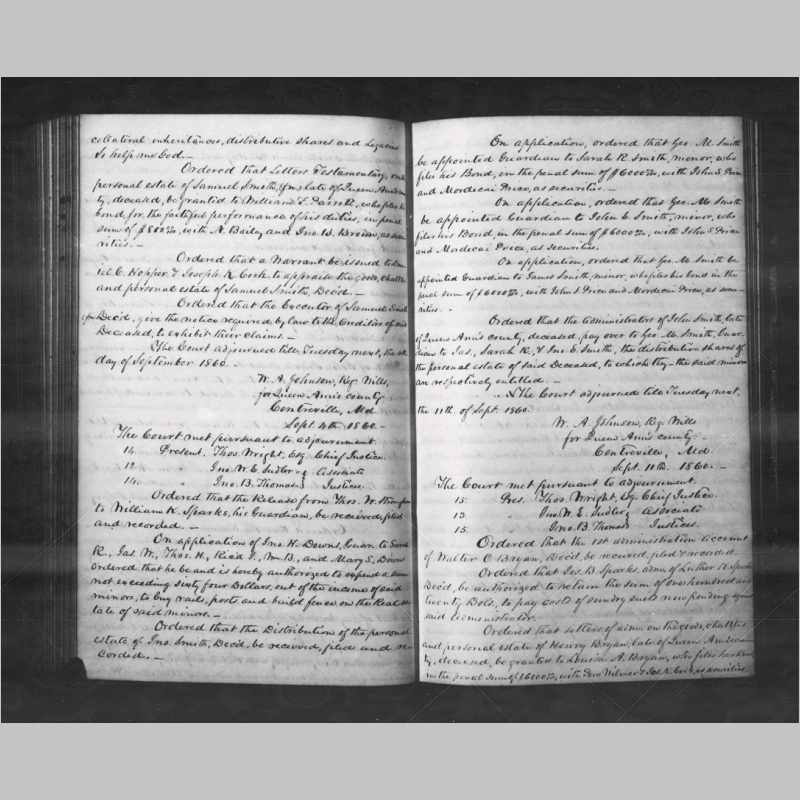 collateral inheritances, distributive shares and Legacies
So help me God. —
Ordered that Letters Testamentary, on
personal estate of Samuel Smith, late of Queen Ann's
ty, deceased, be granted to William, who files his
bond, for the faithful performance of his duties, in penal
sum of $800, with A. Bailey and Jno. B. Brown, as secu
rities. —
Ordered that a Warrant be issued to
C. Hopper & Joseph K. Cook, to appraise the goods, chattels
and personal estate of Samuel Smith, Dec'd. —
Ordered that the Executor of Samuel Smith
Dec'd, give the notice required by law to the Creditors of said
Deceased, to exhibit their claims. —
The Court adjourned till Tuesday next, the 4th
day of September 1860. —
W. A. Johnson, Reg. Wills,
for Queen Ann's county
Centreville, Md
Sept. 4th 1860. —
The Court met pursuant to adjournment.
14 Present. Thos. Wright, Esq. Chief Justice.
12 " Jno. W. E. Sudler } Associate
14 " Jno. B. Thomas } Justices.
Ordered that the Release from Thos. W.
to William K. Sparks, his Guardian, be received, filed
and recorded. —
On application of Jno. H. Downs, Guar. to Sarah
R., Jas. W., Thos. H., M. B., and Mary S. Downs
ordered that he be and is hereby authorized to expend a sum
not exceeding sixty four Dollars, out of the income of said
minors, to buy rails, posts and build fence on the Real Es
tate of said minors. —
Ordered that the Distribution of the personal
estate of Jno. Smith, Dec'd, be received, filed and re
corded. —
On application, ordered that Geo. M. Smith
be appointed Guardian to Sarah R. Smith, minor, who
files his Bond, in the penal sum of $6000, with John S. Price
and Mordecai Price, as securities. —
On application, ordered that Geo. M. Smith
be appointed Guardian to John E. Smith, minor, who
files his Bond, in the penal sum of $6000, with John S. Price
and Mordecai Price, as securities.
On application, ordered that Geo. M. Smith be
appointed Guardian to James Smith, minor, who files his bond in the
penal sum of $6000, with John S. Price and Mordecai Price, as secu
rities. —
Ordered that the administrators of John Smith, late
of Queen Ann's county, deceased, pay over to Geo. M. Smith, Guar
dian to Jas., Sarah R., & Jno. E. Smith, the distributive shares of
the personal estate of said Deceased, to which they — the said minors
are respectively entitled. —
The Court adjourned till Tuesday next,
the 11th of Sept. 1860.
W. A. Johnson, Reg. Wills
for Queen Ann's county. —
Centreville, Md.
Sept. 11th 1860. —
The Court met pursuant to adjournment.
15 Pres. Thos. Wright, Esq. Chief Justice.
13 " Jno. W. E. Sudler } Associate
15 " Jno. B. Thomas } Justices.
Ordered that the 1st administration account
of Walter C. Bryan, Dec'd, be received, filed & recorded.
Ordered that Jas. B. Sparks, adm. of Luther R. Sparks
Dec'd, be authorized to retain the sum of one hundred and
twenty Dols. to pay costs of sundry suits now pending against
said administrator.
Ordered that letters of admn. on the goods, chattels
and personal estate of Henry Bryan, late of Queen Ann's coun
ty, deceased, be granted to Louisa A. Bryan, who files her bond
in the penal sum of $6000, with & Jas. K. Cook, as securities